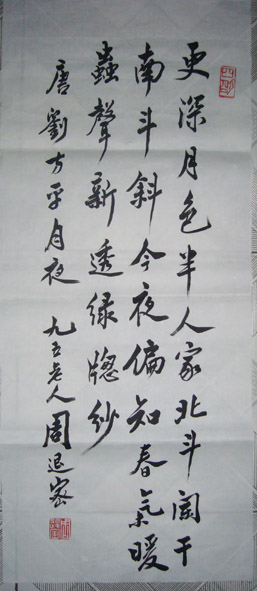 更深月色半人家北斗闌干
南斗斜今夜偏知春氣暖
蟲聲新透绿牕紗
唐劉方平月夜 九五老人周退密